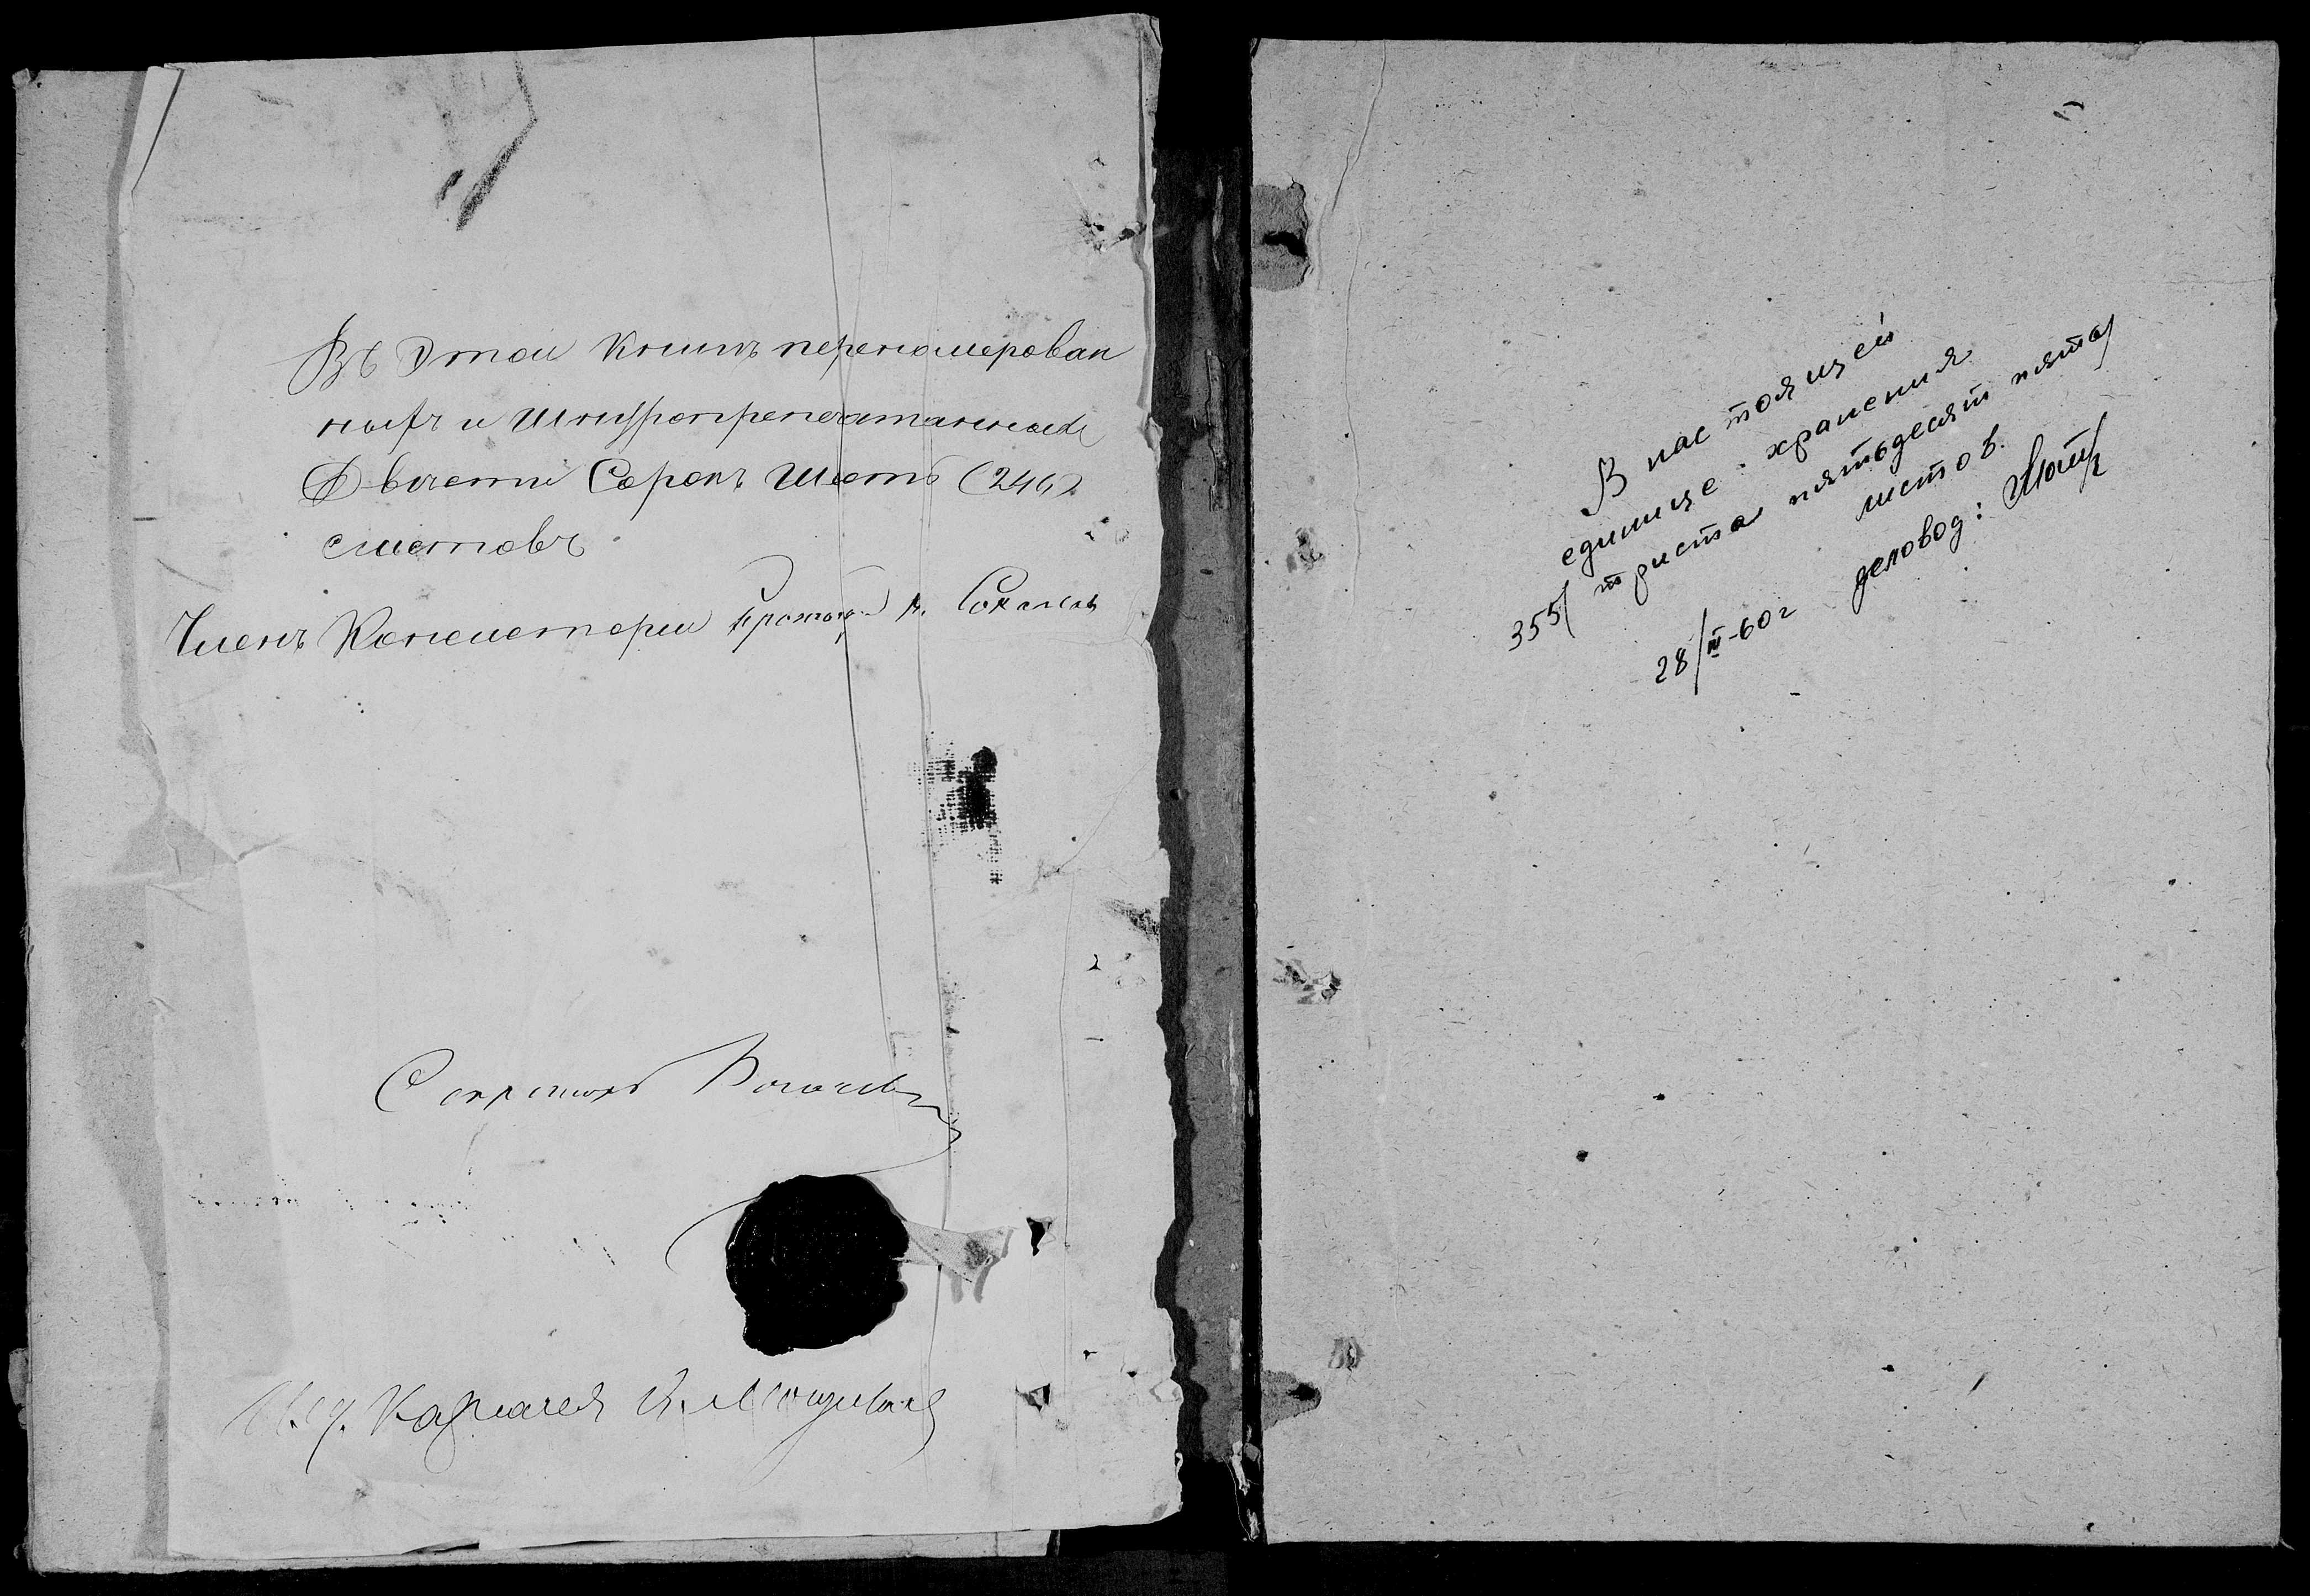 Въ Этой Книгѣ перенолмерован
ныхъ и Шнуропрепечатанныхъ
Двѣсти Сорокъ Шесть (246)
листовъ
Членъ Консистории Протоіер. Соколовъ
Секретарь
И. д. Казначея
В настоящей
единице хранения
355/ триста пятьдесят пять/
листов.
28/III-60г деловод: